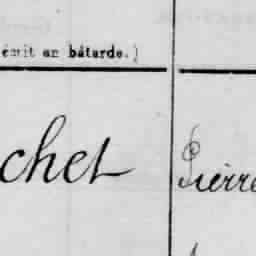 écrit en bâtarde.)
chet Pierre